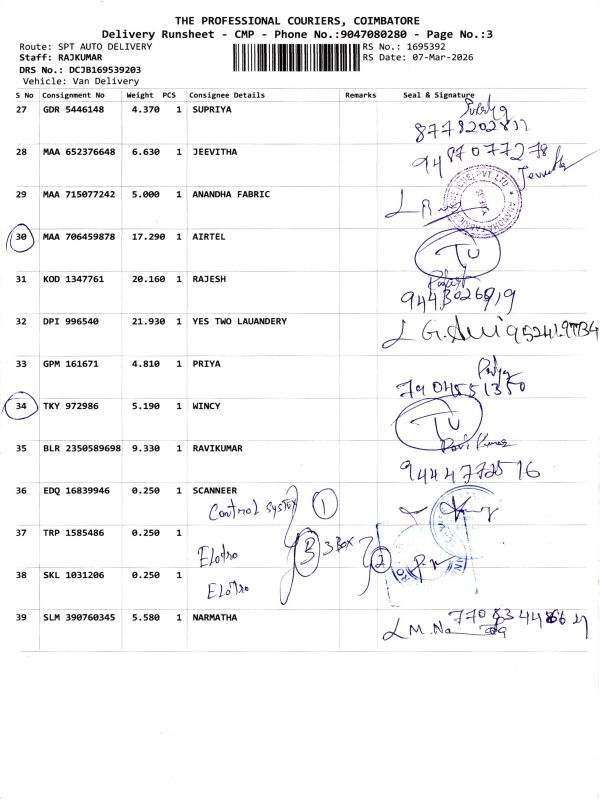 THE PROFESSIONAL COURIERS, COIMBATORE
Delivery Runsheet - CMP - Phone No.:9047080280 - Page No.:3
Route: SPT AUTO DELIVERY RS No.: 1695392
Staff: RAJKUMAR RS Date: 07-Mar-2026
DRS No.: DCJB169539203
Vehicle: Van Delivery
S No Consignment No Weight PCS Consignee Details Remarks Seal & Signature
27 GDR 5446148 4.370 1 SUPRIYA
28 MAA 652376648 6.630 1 JEEVITHA 9487077278
29 MAA 715077242 5.000 1 ANANDHA FABRIC
30 MAA 706459878 17.290 1 AIRTEL TU
31 KOD 1347761 20.160 1 RAJESH
32 DPI 996540 21.930 1 YES TWO LAUANDERY
33 GPM 161671 4.810 1 PRIYA
7904551350
34 TKY 972986 5.190 1 WINCY TU
35 BLR 2350589698 9.330 1 RAVIKUMAR Ravi Kumar
36 EDQ 16839946 0.250 1 SCANNEER
Control 1
37 TRP 1585486 0.250 1
Elotro 3 3 BOX 2
38 SKL 1031206 0.250 1
Elotro
39 SLM 390760345 5.580 1 NARMATHA